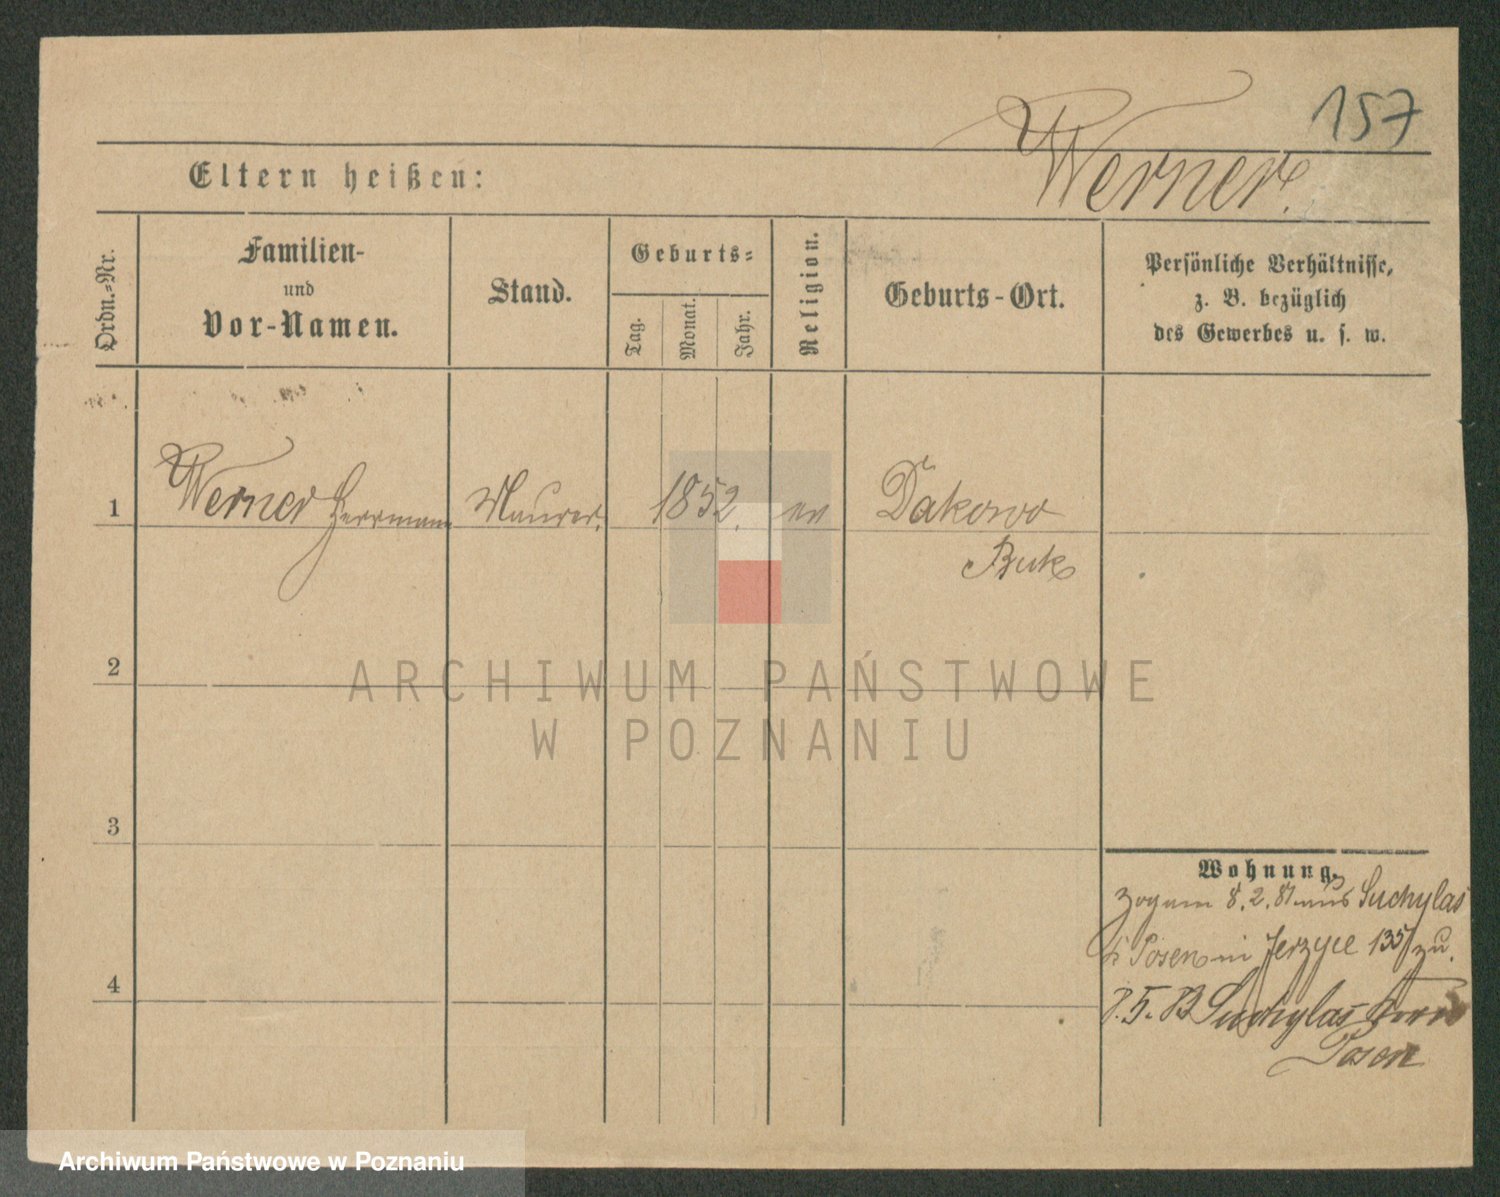 157
Werner.
Eltern heißen:
Ordn.-Nr.
Familien-
und
Vor-Namen.
Stand.
Geburts-
Tag.
Monat.
Jahr.
Religion.
Geburts-Ort.
Persönliche Verhältnisse,
z. B. bezüglich
des Gewerbes u. s. w.
1 Werner Herrmann Maurer. 1852. ev Dakowo
Buk
2
ARCHIWUM PAŃSTWOWE
W POZNANIU
3
Wohnung.
8. 2. 81 aus Suchylas
Posen in Jerzyce 135 zu.
4
5. 83 Suchylas
Posen
Archiwum Państwowe w Poznaniu